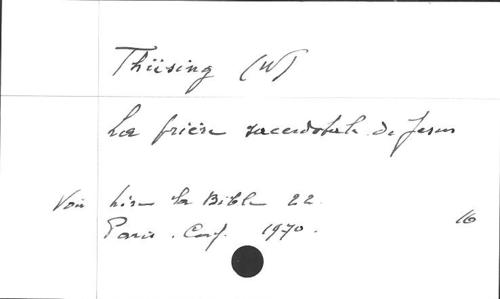 Thüsing (W)
La prière sacerdotale de Jesus
Voir Lire la Bible 22.
Paris. Cerf. 1970.
16